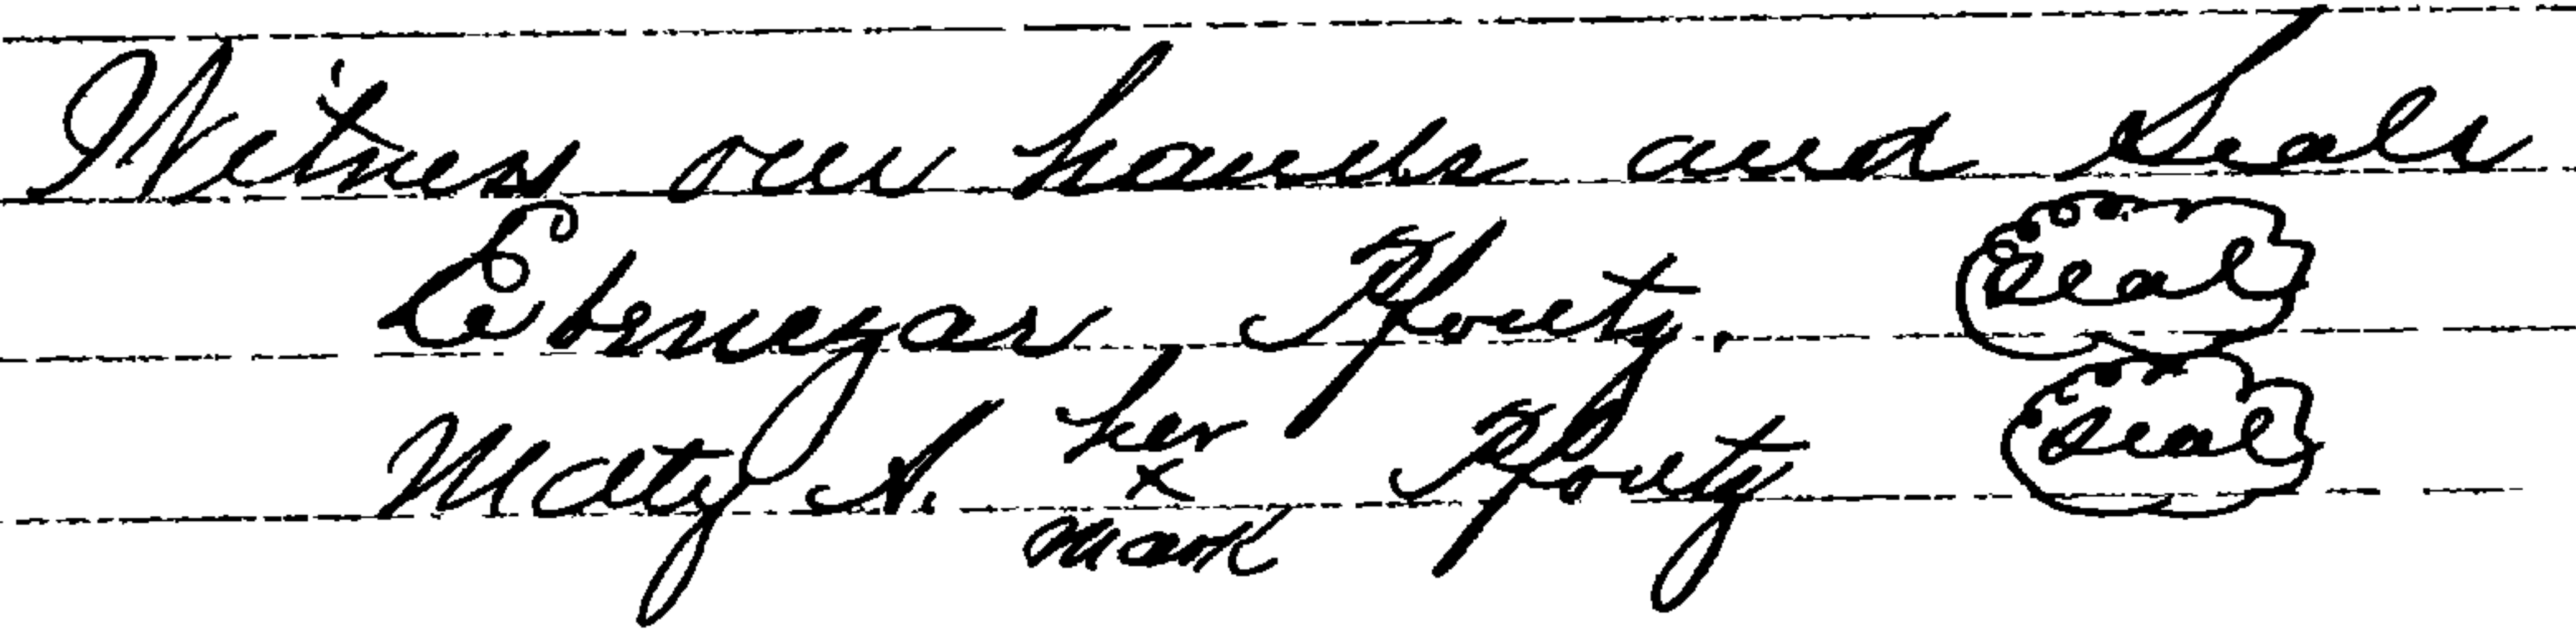 Witness our hands and Seals
Ebenezar Pfouty. Seal
Maty A. her x mark Pfouty Seal